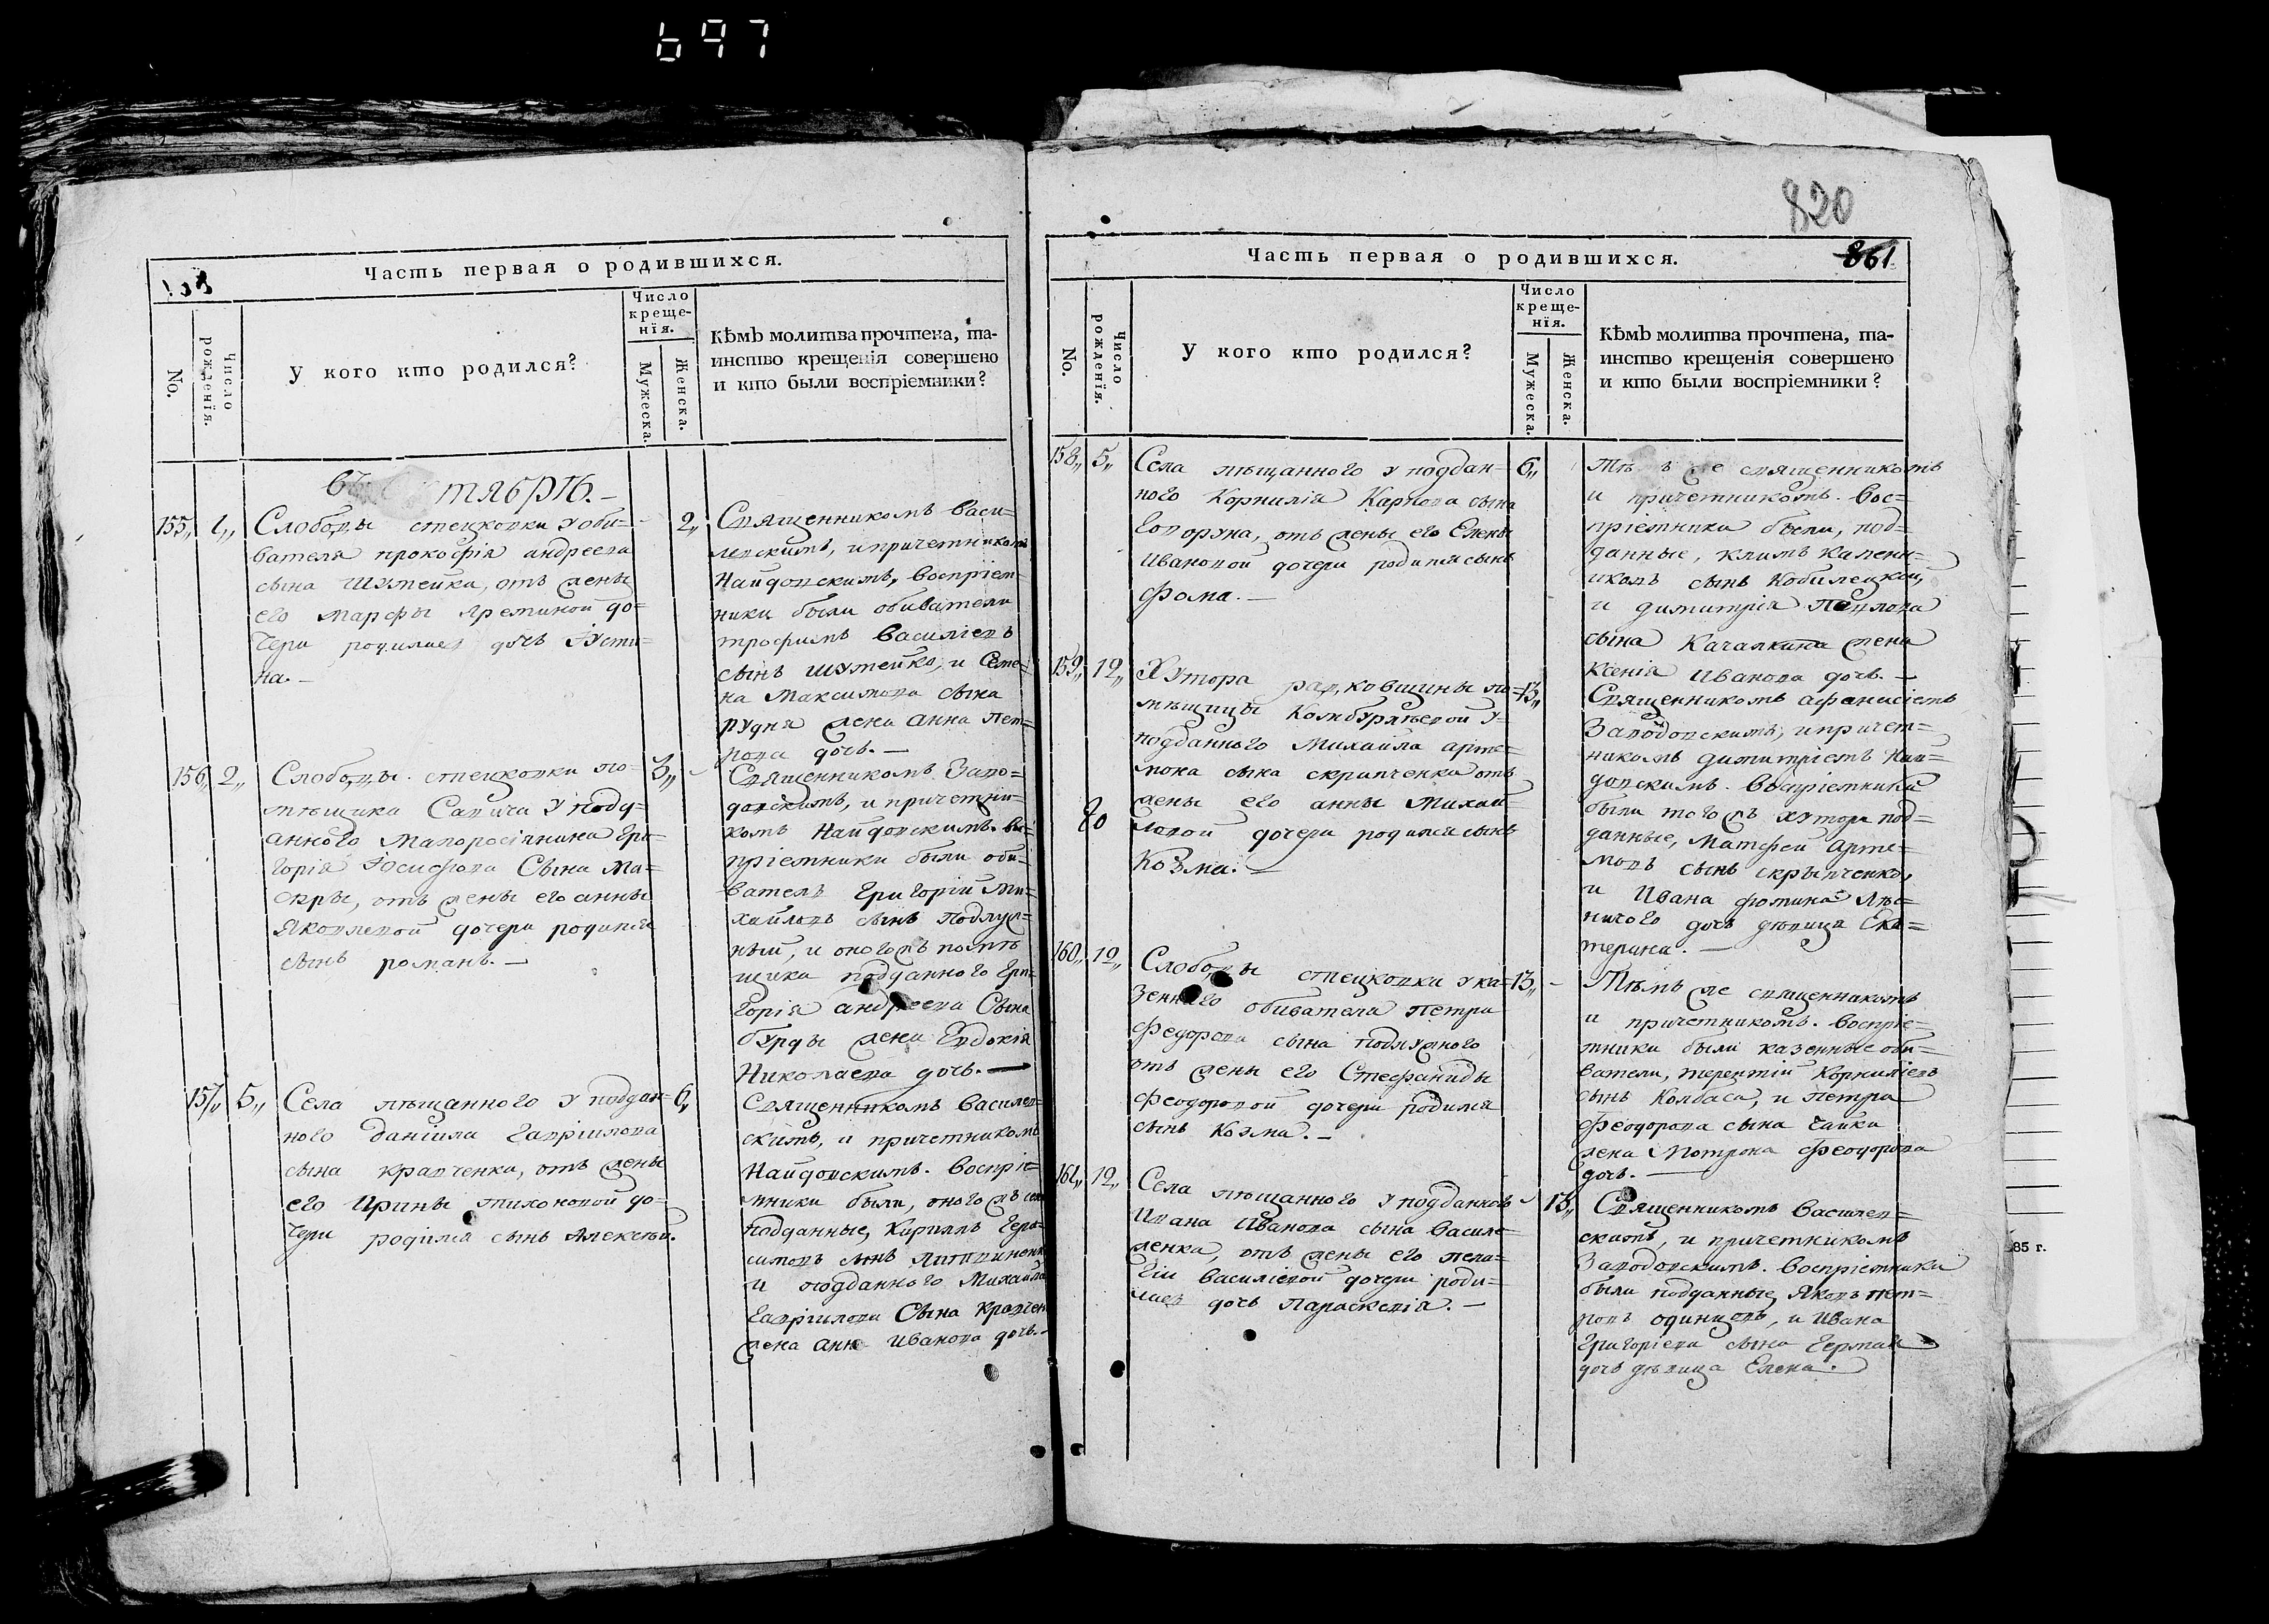 697
Часть первая о родившихся.
No.
Число рожденія.
У кого кто родился?
Число креще-
нія.
Мужеска.
Женска.
Кѣмъ молитва прочтена, та-
инство крещенія совершено
и кто были воспріемники?
тябрѣ.
155,, 1,, 2,,
Слободы стецковки у оби-
вателя прокофія андреева
сына Шумейка, отъ жены
его марфы яреминой до-
чери родилась дочь Іусти-
на.
Священникомъ Васи-
левскимъ, и причетникомъ
Найдовскимъ, воспріем-
ники были обиватели
трофимъ Василіевъ
сынъ шумейко, и Семе-
на Максимова сына
рудня жена анна пет-
рова дочь.
156,, 2,, 3,,
Слободы стецковки по-
мѣщика Савича у подд-
анного Малоросіянина Гри-
горія Іосифова Сына Ма-
скры, отъ жены его анны
Яковлевой дочери родился
сынъ романъ.
Священникомъ Заво-
довскимъ, и причетни-
комъ Найдовскимъ. Вос-
пріемники были оби-
ватель Григорій Ми-
хайловъ сынъ Подлуж-
ный, и оного жъ помѣ
щика подданного Гри-
горія андреева Сына
бурды жена Евдокія
Николаева дочь.
157,, 5,, 6,,
Села мѣщанного у поддан-
ного даніила Гавріилова
сына кравченка, отъ жены
его Ирины тихоновой до-
чери родился сынъ Алексѣй.
Священникомъ Василев-
скимъ, и причетникомъ
Найдовскимъ. Воспріе-
мники были, оного жъ села
подданные, Кириллъ Гера-
симовъ сынъ Литвиненко
и подданного Михаила
Гавріилова Сына Кравчен
жена анна Иванова дочь.
820
861
Часть первая о родившихся.
No.
Число рожденія.
У кого кто родился?
Число креще-
нія.
Мужеска.
Женска.
Кѣмъ молитва прочтена, та-
инство крещенія совершено
и кто были воспріемники?
158,, 5,, 6,,
Села мѣщанного у поддан-
ного Корнилія Карпова сына
Говоруна, отъ жены его Елены
Ивановой дочери родился сынъ
Фома.
же священникомъ
и причетникомъ. Вос-
пріемники были, под-
данные, климъ
сынъ Кобилецкой,
и димитрія Павлова
сына Качалкина жена
Ксенія Иванова дочь.
159,, 12,, 13,,
Хутора равковщины по-
мѣщицы Комбурлѣевой у
подданного Михаила арте-
мова сына скрипченка отъ
жены его анны Михай-
ловой дочери родился сынъ
Козма.
Священникомъ афанасіемъ
Заводовскимъ, и причет-
никомъ димитріемъ Най-
довскимъ. Воспріемники
были того жъ хутора под-
данные, Матфей Арте-
мовъ сынъ скрыпченко,
и Ивана фомина Лѣс-
ничого дочь дѣвица Ека-
терина.
160,, 12,, 13,,
Слободы стецковки у ка-
зенного обивателя Петра
Федорова сына Подлужного
отъ жены его Стефаниды
Феодоровой дочери родился
сынъ Козма.
Тѣмъ же священникомъ
и причетникомъ. Воспріе-
мники были казенные оби-
ватели, терентій Корниліевъ
сынъ Колбаса, и Петра
Феодорова сына Чайки
жена Мотрона Феодорова
дочь.
161,, 12,, 13,,
Села мѣщанного у подданного
Ивана Иванова сына Василе-
ленка, отъ жены его пела-
гіи василіевой дочери роди-
лась дочь Параскевія.
Священникомъ Василев-
скимъ, и причетникомъ
Заводовскимъ. Воспріемники
были подданные, Яковъ пет-
ровъ одинцевъ, и Ивана
Григоріева сына
дочь дѣвица Елена.
85 г.